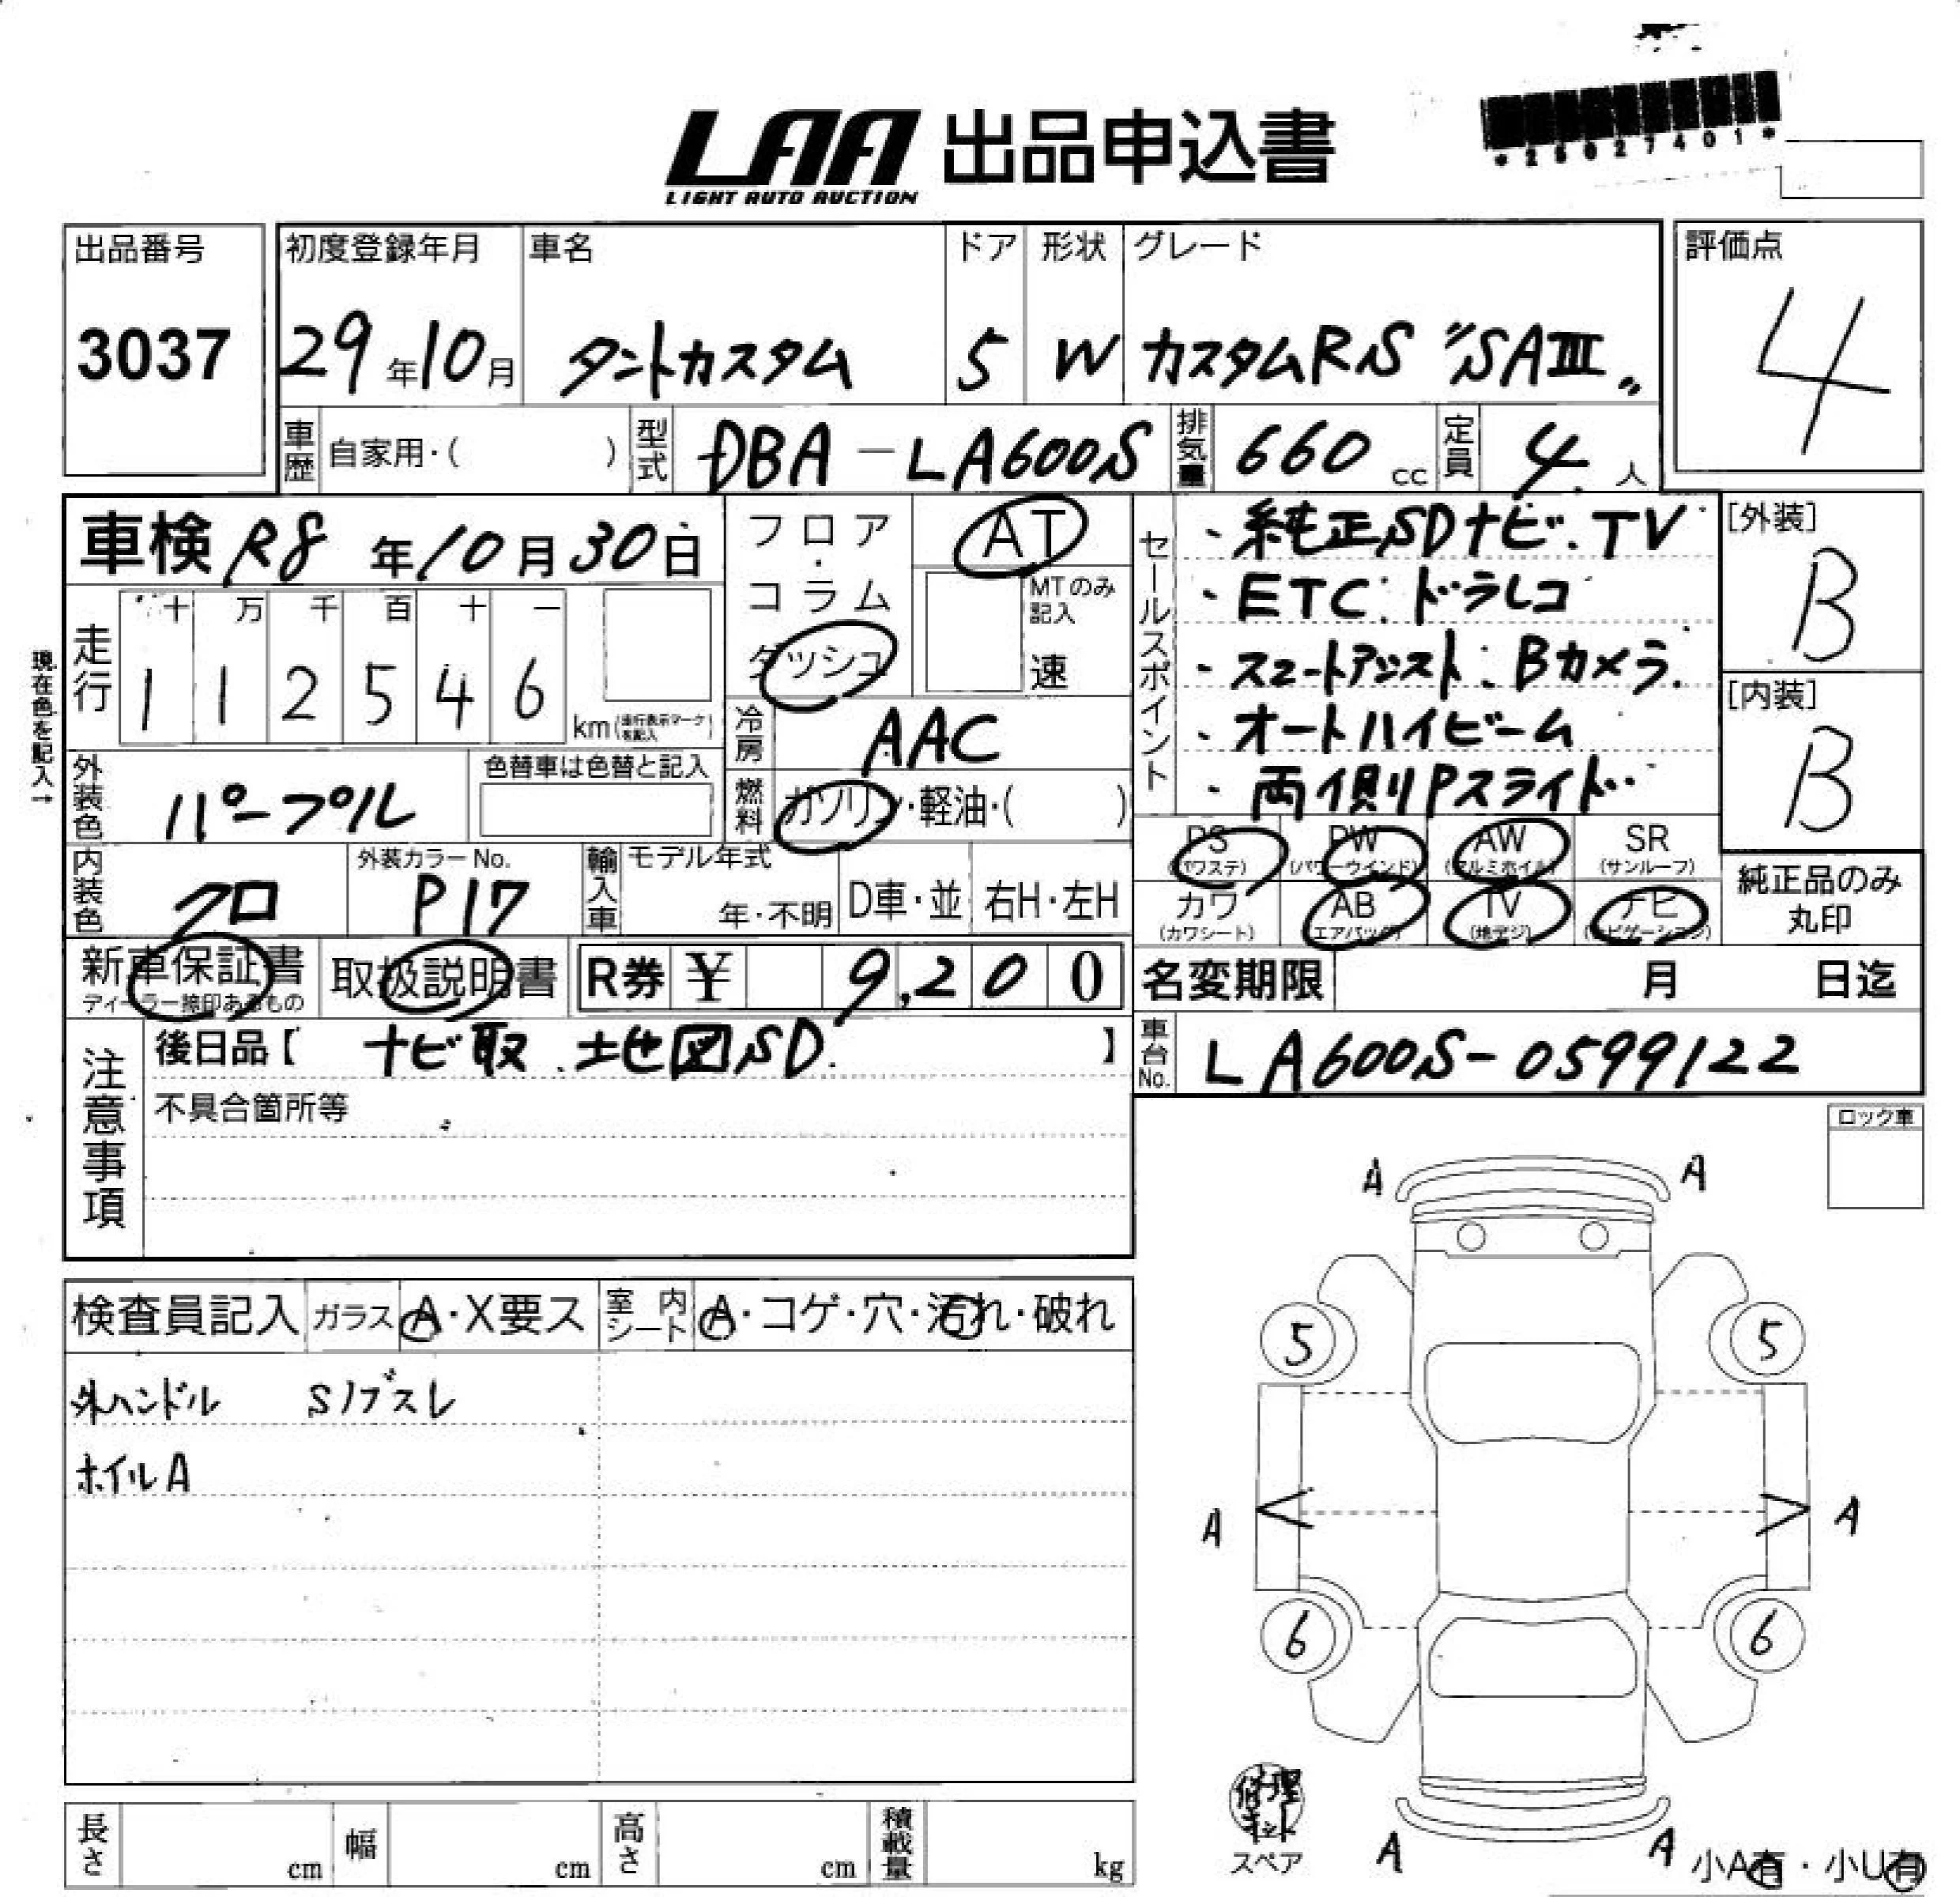 LAA 出品申込書
LIGHT AUTO AUCTION
*25027401*
出品番号
3037
初度登録年月
29年10月
車名
タントカスタム
ドア
5
形状
W
グレード
カスタムRS "SAⅢ"
評価点
4
車歴 自家用・( )
型式 DBA-LA600S
排気量 660 cc
定員 4 人
車検 R8 年 10 月 30 日
現在色を記入→
走行
十 万 千 百 十 一
1 1 2 5 4 6 km(走行表示マークを記入)
フロア・コラム
ダッシュ
AT
MTのみ記入
速
冷房 AAC
燃料 ガソリン・軽油・( )
セールスポイント
・純正SDナビ.TV
・ETC.ドラレコ
・スマートアシスト.Bカメラ.
・オートハイビーム
・両側Pスライド
[外装]
B
[内装]
B
外装色 パープル
色替車は色替と記入
内装色 クロ
外装カラーNo.
P17
輸入車 モデル年式
年・不明
D車・並
右H・左H
PS (パワステ)
PW (パワーウインド)
AW (アルミホイル)
SR (サンルーフ)
カワ (カワシート)
AB (エアバッグ)
TV (地デジ)
ナビ (ナビゲーション)
純正品のみ丸印
新車保証書
ディーラー捺印あるもの
取扱説明書
R券 ¥ 9,200
名変期限 月 日迄
注意事項
後日品【 ナビ取.地図SD. 】
不具合箇所等
車台No. LA600S-0599122
ロック車
検査員記入
ガラス A・X要ス
室内シート A・コゲ・穴・汚れ・破れ
外ハンドル Sノブスレ
ホイルA
A A
5 5
A A
6 6
A A
修理キット
スペア
小A有・小U有
長さ cm
幅 cm
高さ cm
積載量 kg